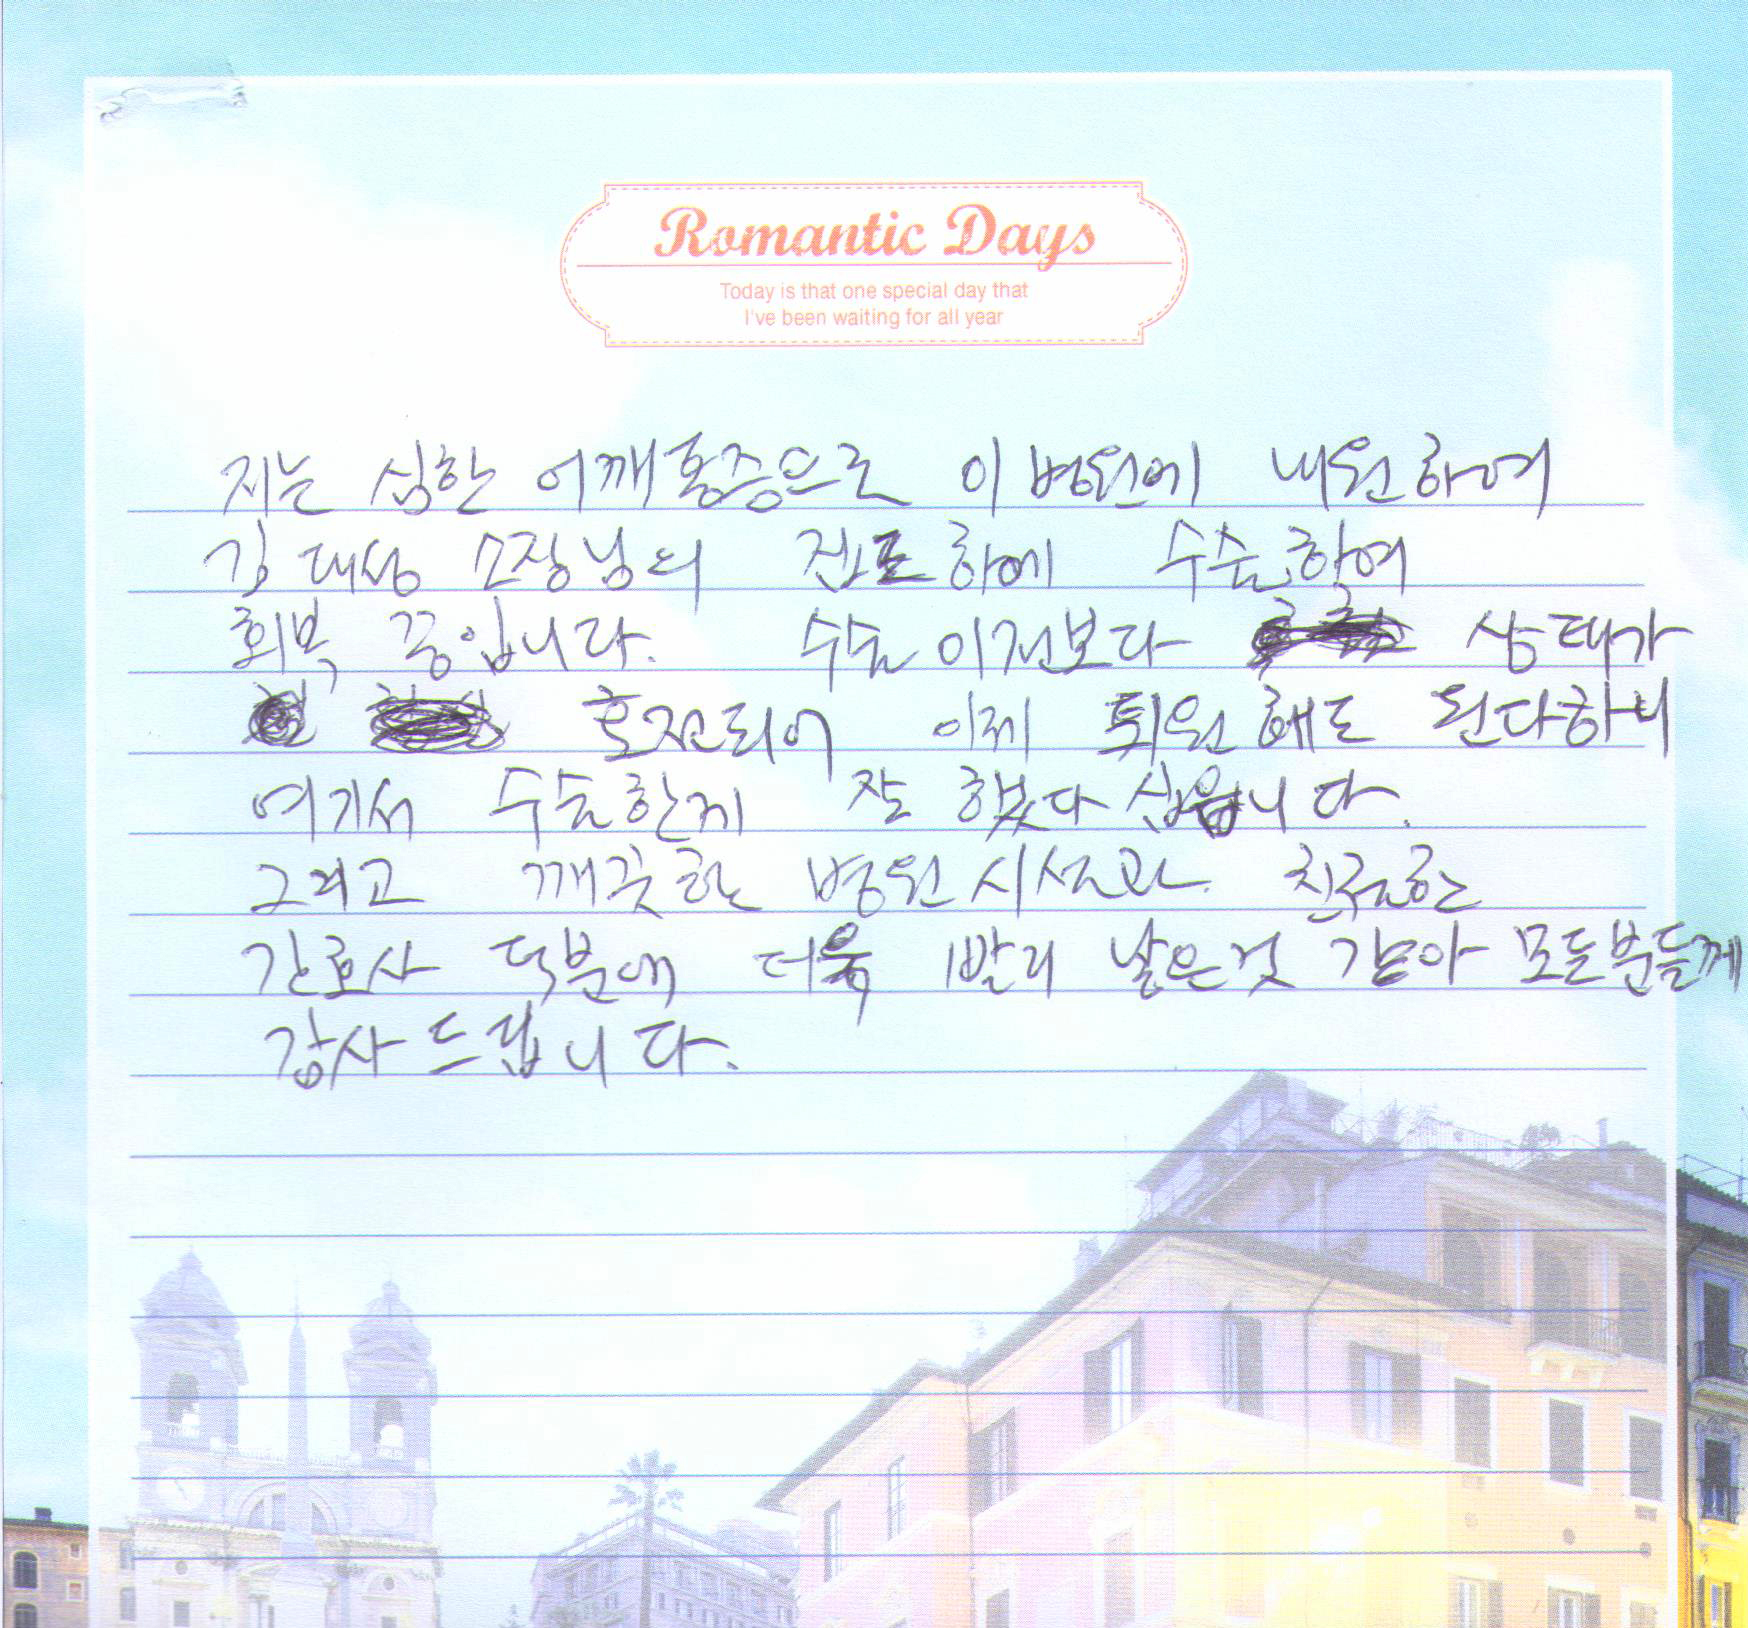 Romantic Days
Today is that one special day that
I've been waiting for all year
저는 심한 어깨통증으로 이 병원에 내원하여
김대성 소장님의 진료하에 수술하여
회복 중입니다. 수술 이전보다 상태가
호전되어 이제 퇴원해도 된다하니
여기서 수술한게 잘 했다 싶습니다.
그리고 깨끗한 병원시설과 친절한
간호사 덕분에 더욱 빨리 낳은것 같아 모든분들께
감사드립니다.